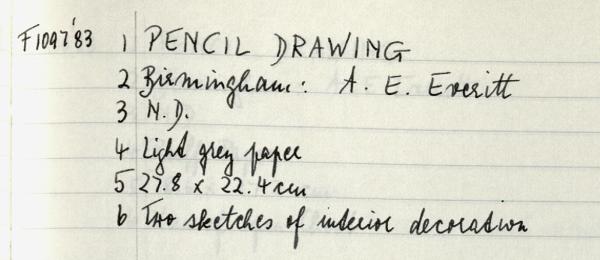 F1097'83 1 PENCIL DRAWING
2 Birmingham: A. E. Everitt
3 N.D.
4 Light grey paper
5 27.8 x 22.4cm
6 Two sketches of interior decoration